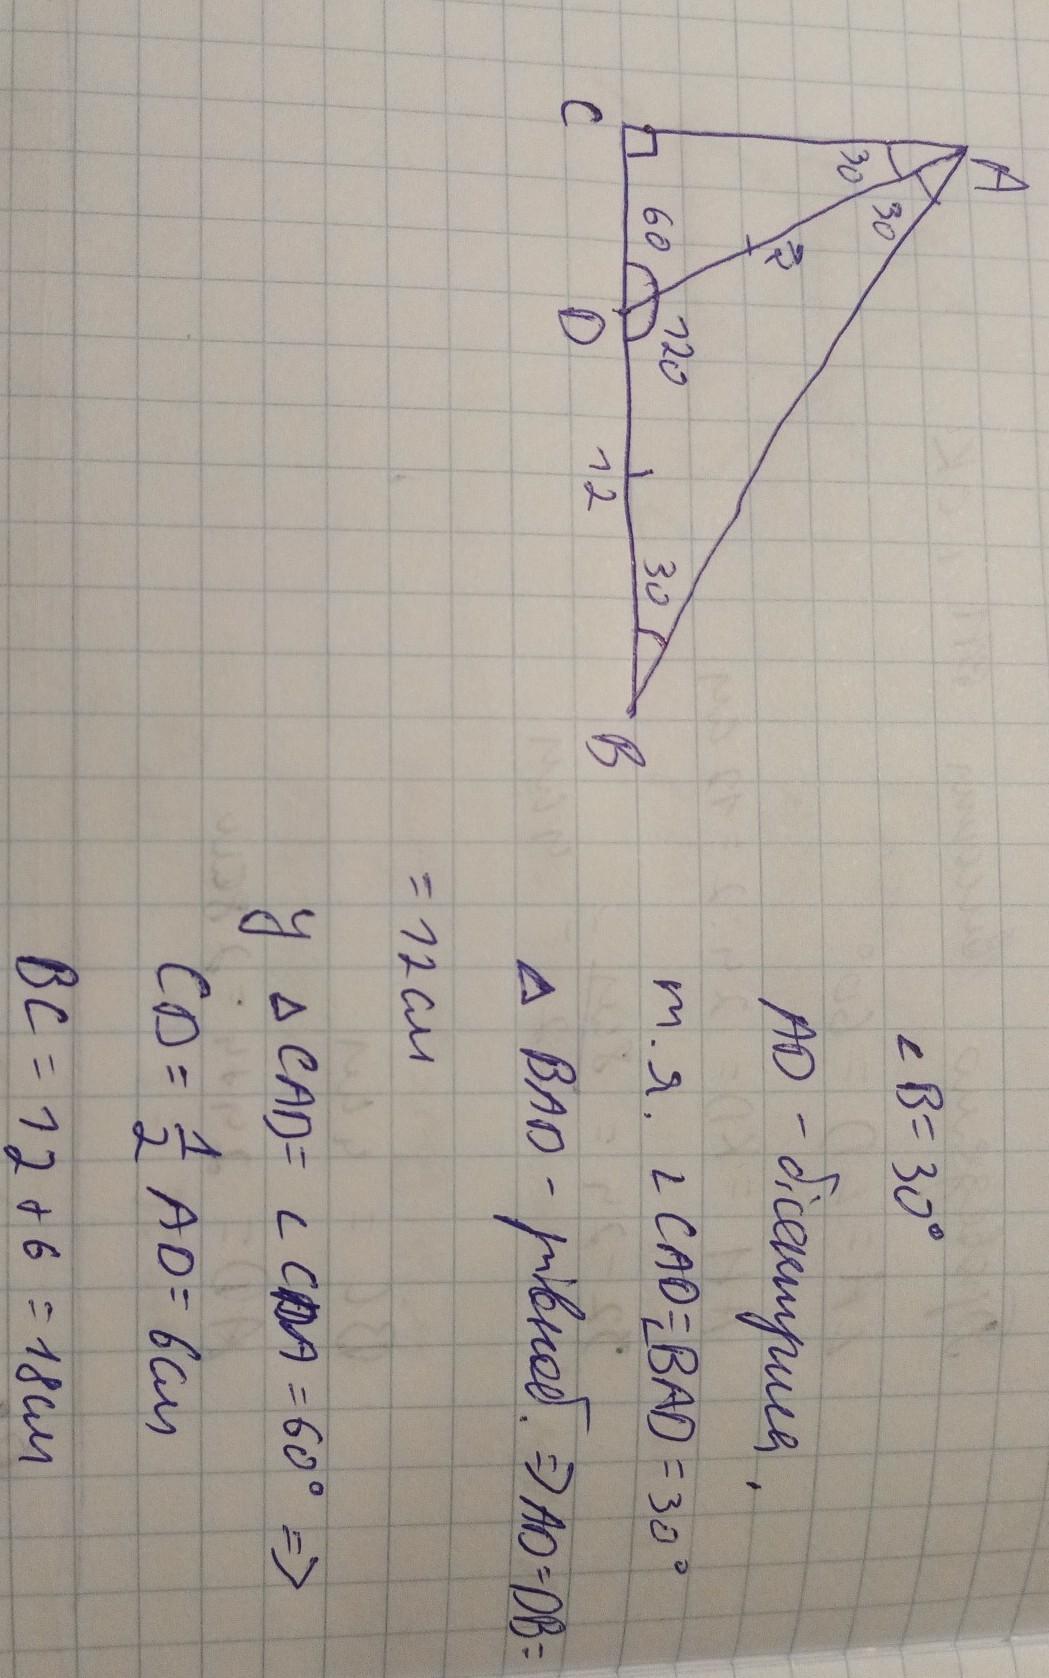 A
30
30
?
C
60
120
D
12
30
B
∠B=30°
AD - бісектриса,
т.я. ∠CAD=∠BAD=30°
Δ BAD - рівноб. ⇒ AD=DB=
=12см
У Δ CAD= ∠ CDA = 60° ⇒
CD = 1/2 AD = 6см
BC = 12 + 6 = 18см